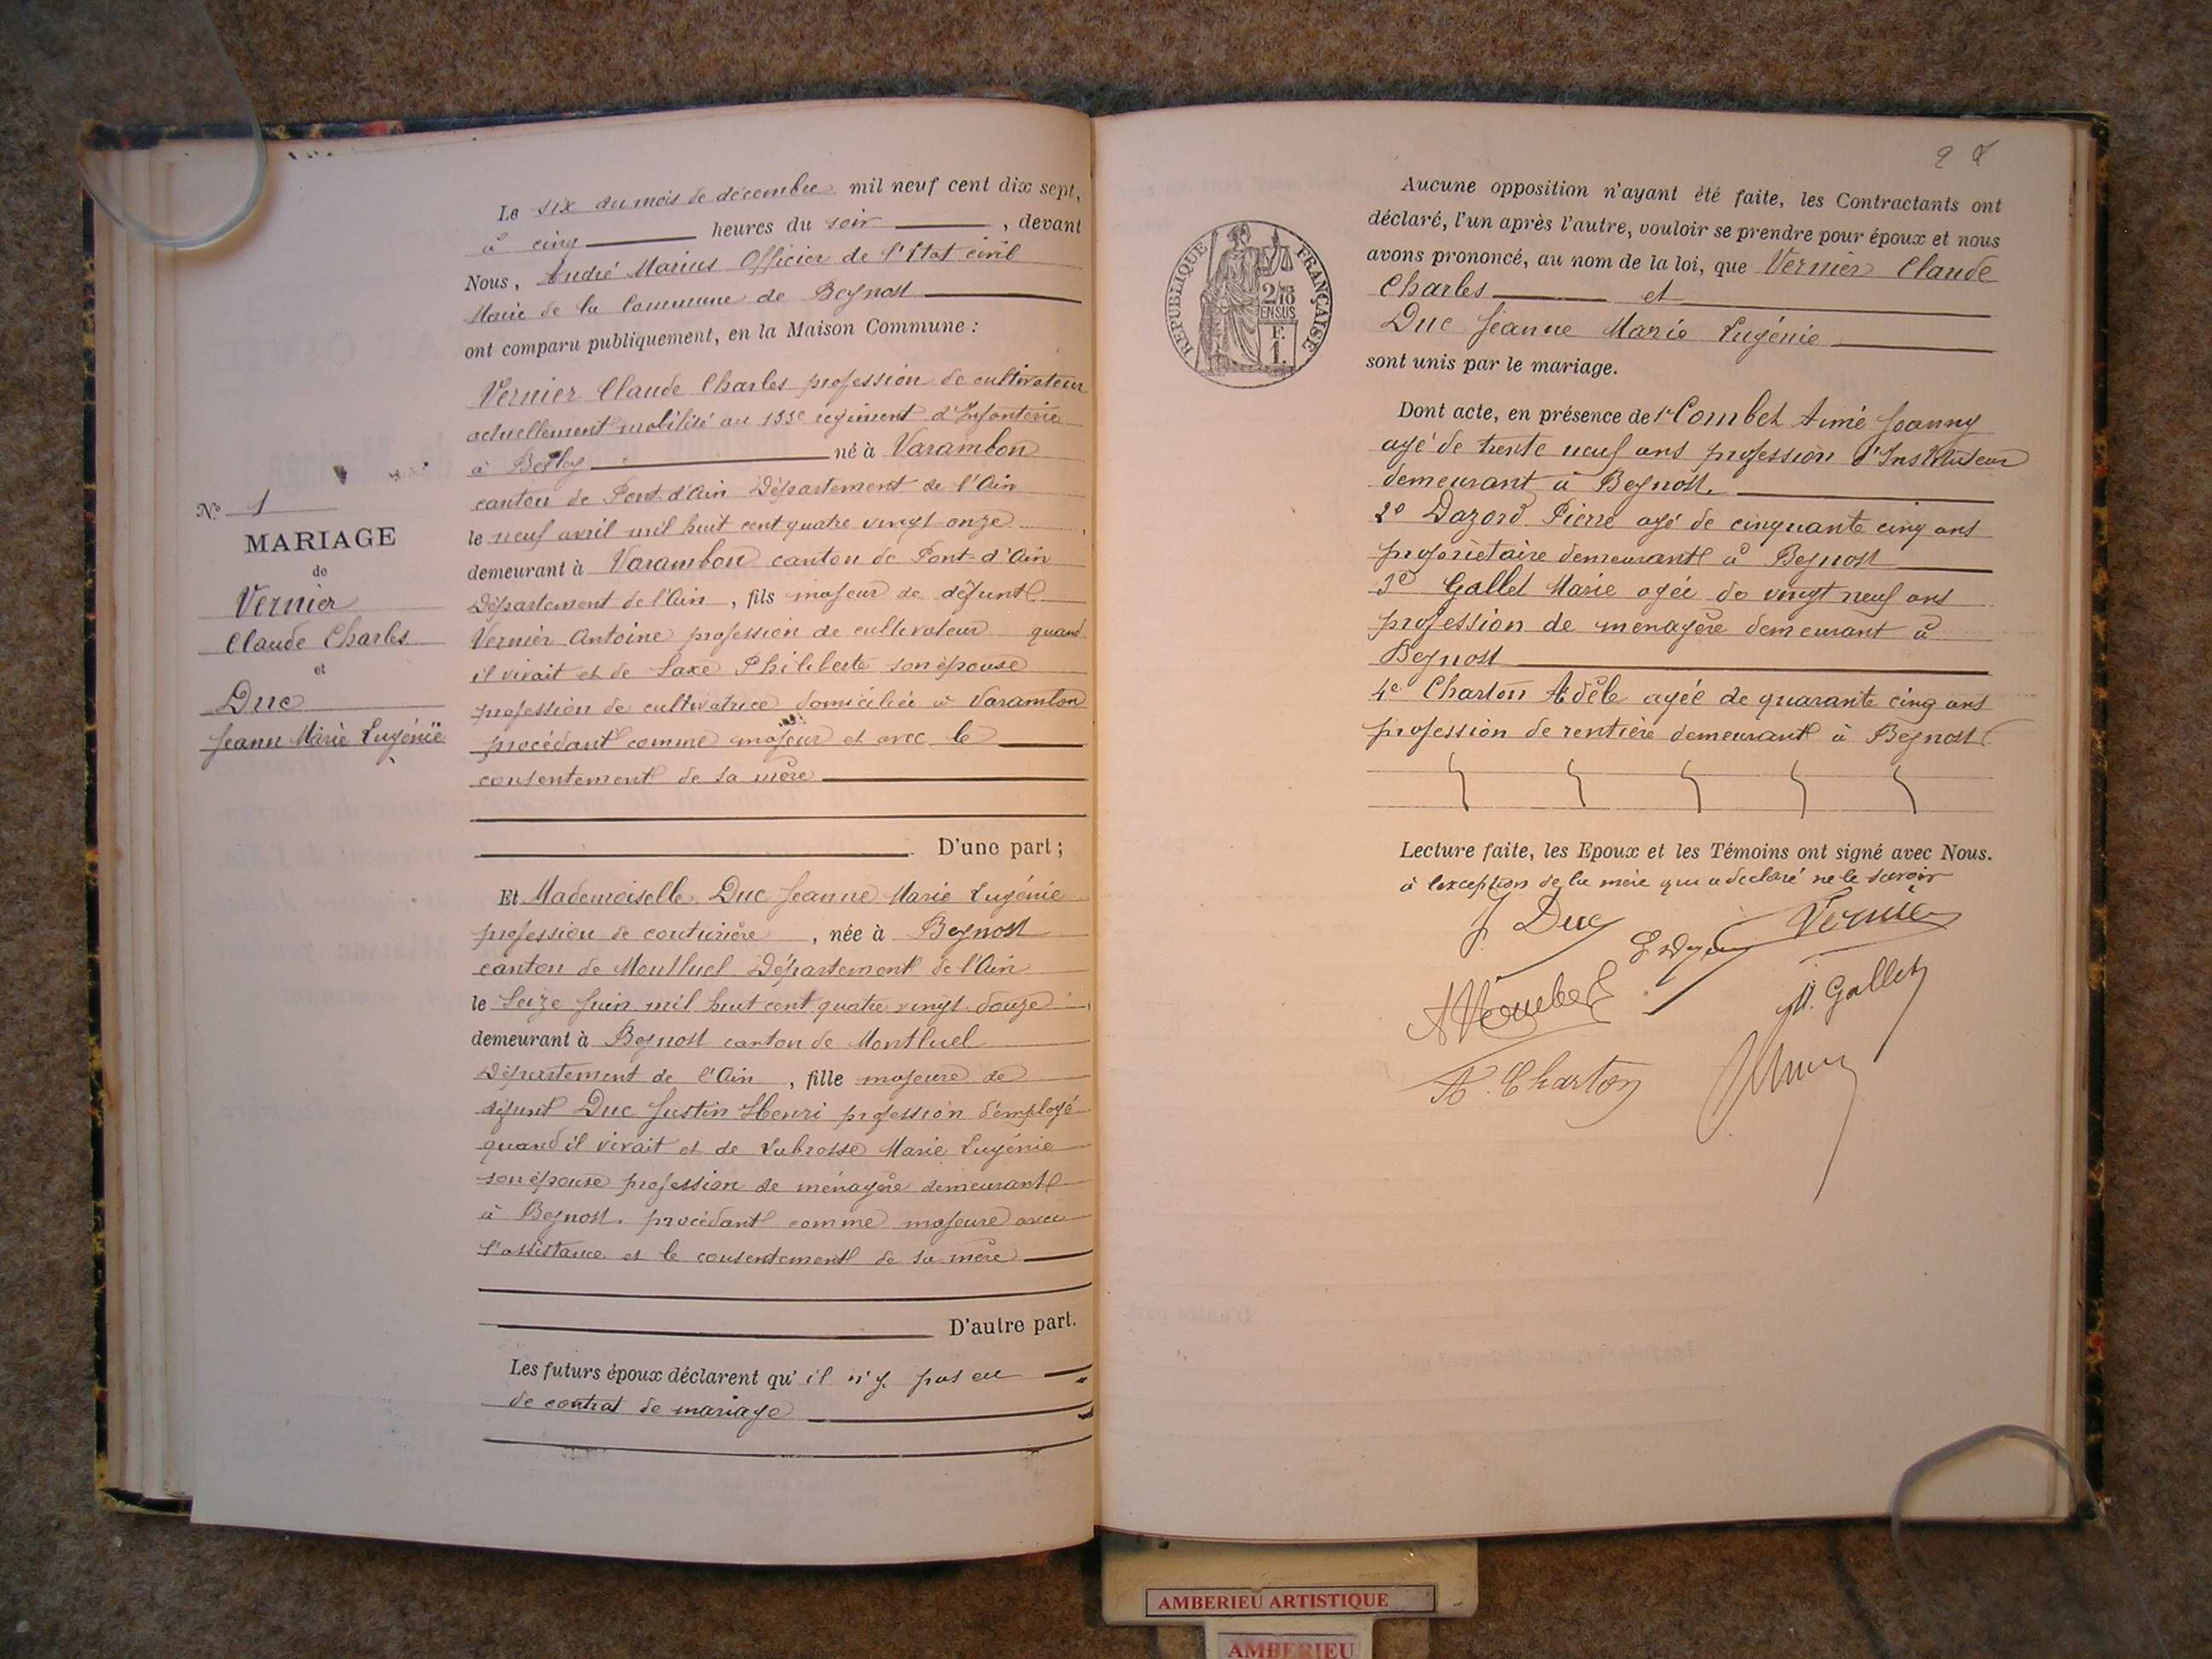 Le six du mois de décembre mil neuf cent dix sept,
à cinq heures du soir, devant
Nous, André Marius Officier de l'Etat civil
Maire de la Commune de Beynost
ont comparu publiquement, en la Maison Commune :
Vernier Claude Charles profession de cultivateur
actuellement mobilisé au 133e régiment d'Infanterie
à Belley né à Varambon
canton de Pont-d'Ain Département de l'Ain
le neuf avril mil huit cent quatre vingt onze
demeurant à Varambon canton de Pont-d'Ain
Département de l'Ain, fils majeur de défunt
Vernier Antoine profession de cultivateur quand
il vivait et de Saxe Philiberte son épouse
profession de cultivatrice domiciliée à Varambon
procédant comme majeur et avec le
consentement de sa mère
D'une part ;
Et Mademoiselle Duc Jeanne Marie Eugénie
profession de couturière, née à Beynost
canton de Montluel Département de l'Ain
le Seize Juin mil huit cent quatre vingt douze
demeurant à Beynost canton de Montluel
Département de l'Ain, fille majeure de
défunt Duc Justin Henri profession d'employé
quand il vivait et de Labrosse Marie Eugénie
son épouse profession de ménagère demeurant
à Beynost. procédant comme majeure avec
l'assistance et le consentement de sa mère
D'autre part.
Les futurs époux déclarent qu'il n'y pas eu
de contrat de mariage
No 1
MARIAGE
de
Vernier
Claude Charles
et
Duc
Jeanne Marie Eugénie
Aucune opposition n'ayant été faite, les Contractants ont
déclaré, l'un après l'autre, vouloir se prendre pour époux et nous
avons prononcé, au nom de la loi, que Vernier Claude
Charles et
Duc Jeanne Marie Eugénie
sont unis par le mariage.
RÉPUBLIQUE FRANÇAISE
2/10
EN SUS
F.
1.
Dont acte, en présence de 1e Combet Aimé Joanny
agé de trente neuf ans profession d'Instituteur
demeurant à Beynost.
2e Dazord Pierre agé de cinquante cinq ans
propriétaire demeurant à Beynost
3e Gallet Marie agée de vingt neuf ans
profession de ménagère demeurant à
Beynost
4e Charton Adèle agée de quarante cinq ans
profession de rentière demeurant à Beynost
Lecture faite, les Epoux et les Témoins ont signé avec Nous.
à l'exception de la mère qui a déclaré ne le savoir
J Duc
Vernier
A Combet
M. Gallet
A. Charton
AMBERIEU ARTISTIQUE
AMBERIEU